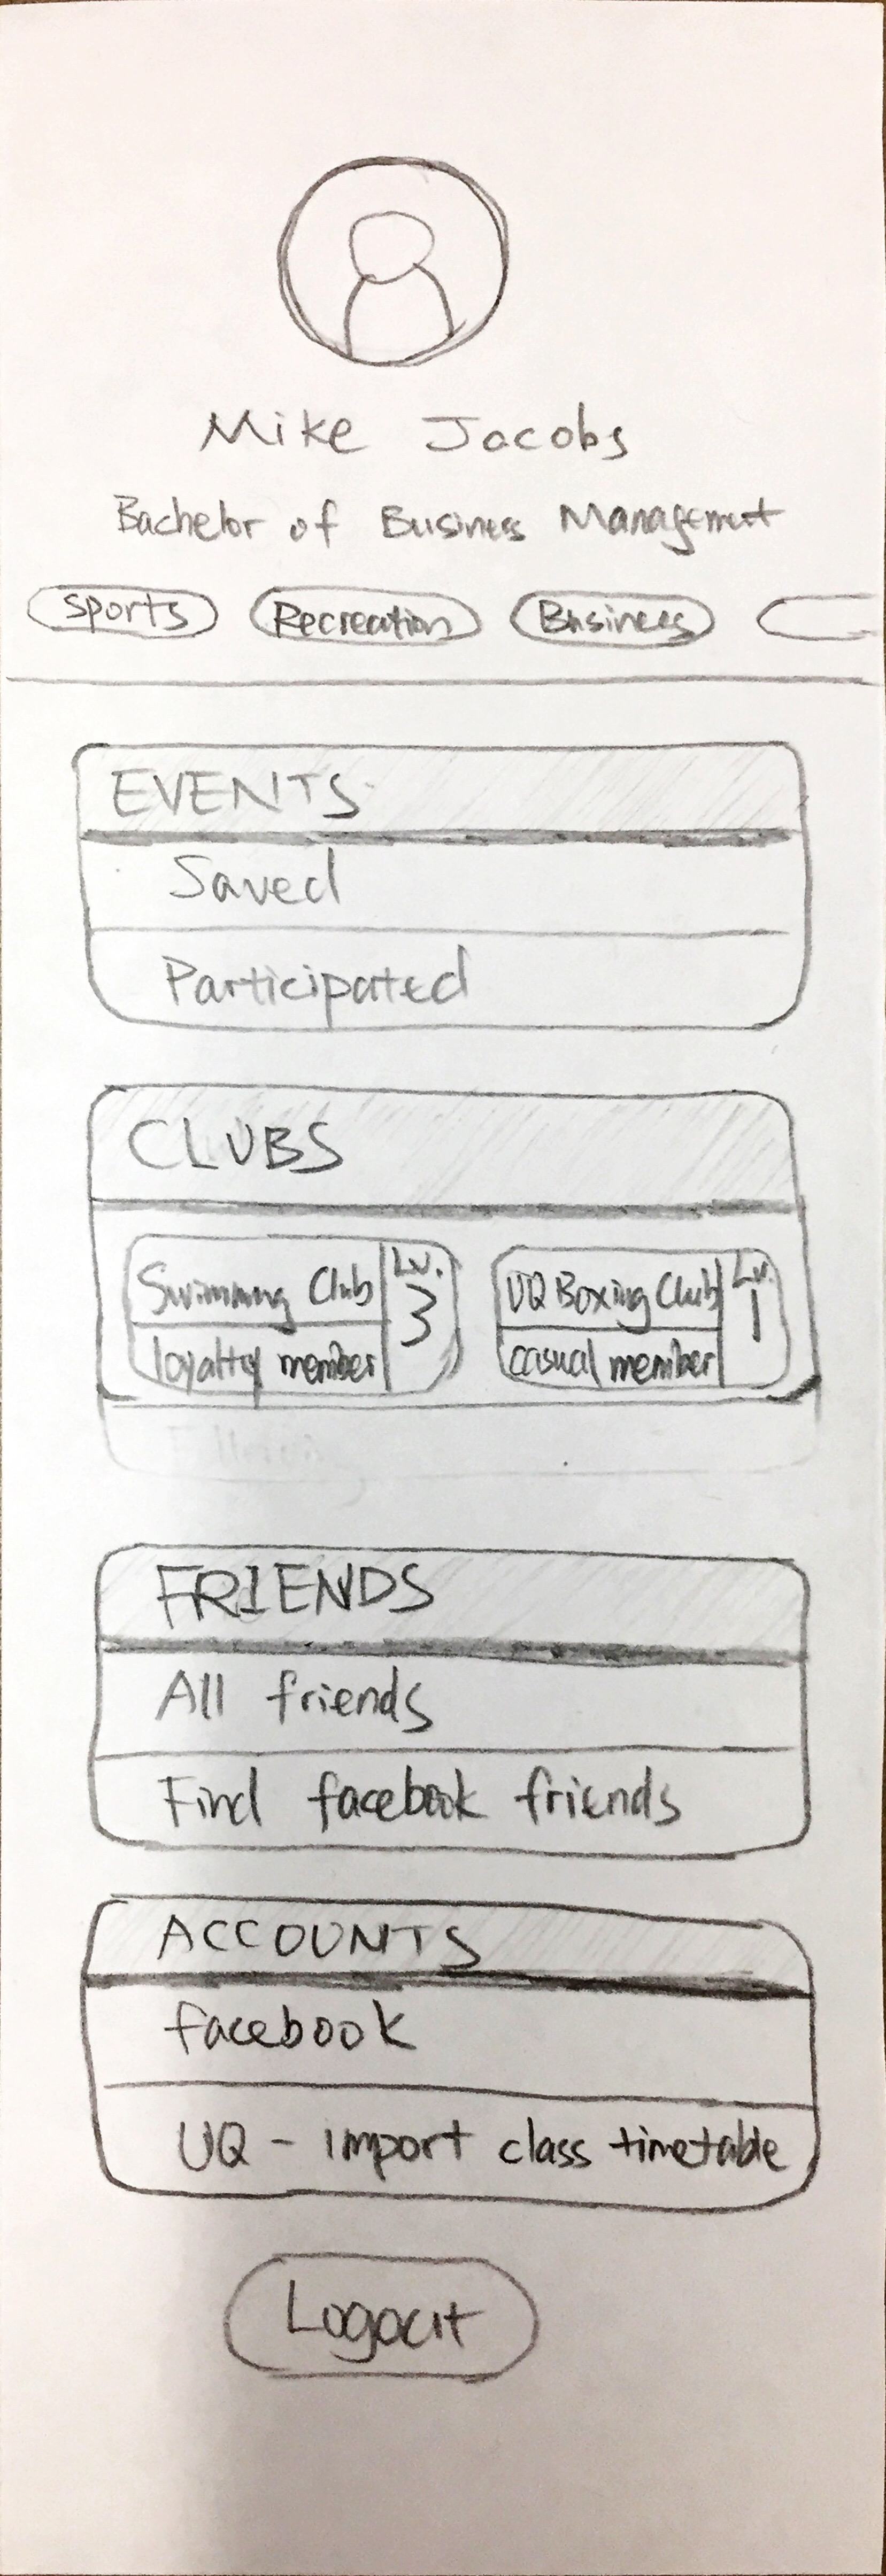 Mike Jacobs
Bachelor of Business Management
Sports Recreation Business
EVENTS
Saved
Participated
CLUBS
Swimming Club Lv. 3
loyalty member
UQ Boxing Club Lv. 1
casual member
FRIENDS
All friends
Find facebook friends
ACCOUNTS
facebook
UQ - import class timetable
Logout